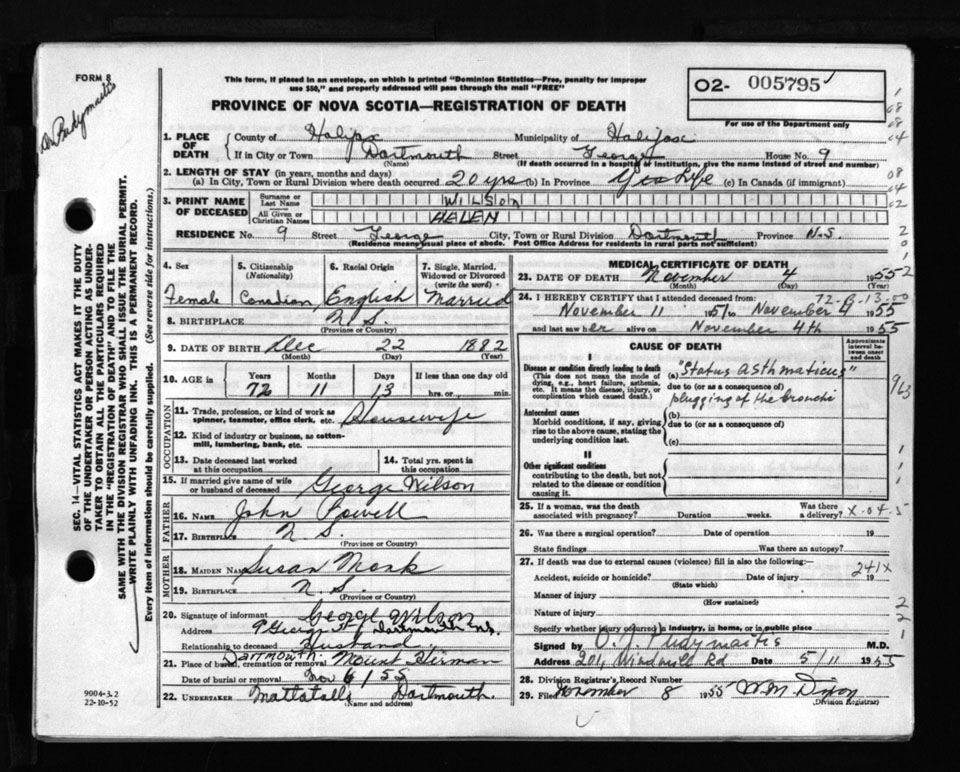 FORM 8
This form, if placed in an envelope, on which is printed "Dominion Statistics—Free, penalty for improper
use $50," and properly addressed will pass through the mail "FREE"
PROVINCE OF NOVA SCOTIA—REGISTRATION OF DEATH
02- 005795
For use of the Department only
1. PLACE OF DEATH
County of Halifax Municipality of Halifax
If in City or Town Dartmouth Street George House No. 9
(Name) (If death occurred in a hospital or institution, give the name instead of street and number)
2. LENGTH OF STAY (in years, months and days)
(a) In City, Town or Rural Division where death occurred 20 yrs (b) In Province Life (c) In Canada (if immigrant)
3. PRINT NAME OF DECEASED
Surname or Last Name WILSON
All Given or Christian Names HELEN
RESIDENCE No. 9 Street George City, Town or Rural Division Dartmouth Province N.S.
(Residence means usual place of abode. Post Office Address for residents in rural parts not sufficient)
4. Sex
Female
5. Citizenship
(Nationality)
Canadian
6. Racial Origin
English
7. Single, Married, Widowed or Divorced
(write the word)
Married
8. BIRTHPLACE N S
(Province or Country)
9. DATE OF BIRTH Dec 22 1882
(Month) (Day) (Year)
10. AGE in
Years Months Days If less than one day old
72 11 13 hrs. or min.
OCCUPATION
11. Trade, profession, or kind of work as
spinner, teamster, office clerk, etc. Housewife
12. Kind of industry or business, as cotton-
mill, lumbering, bank, etc.
13. Date deceased last worked
at this occupation
14. Total yrs. spent in
this occupation
15. If married give name of wife
or husband of deceased George Wilson
FATHER
16. NAME John Powell
17. BIRTHPLACE N S.
(Province or Country)
MOTHER
18. MAIDEN NAME Susan Monk
19. BIRTHPLACE N. S
(Province or Country)
20. Signature of informant George Wilson
Address 9 George St Dartmouth N.S.
Relationship to deceased Husband
21. Place of burial, cremation or removal Dartmouth Mount Herman
Date of burial or removal Nov 6 / 55
22. UNDERTAKER Mattatalls Dartmouth.
(Name and address)
MEDICAL CERTIFICATE OF DEATH
23. DATE OF DEATH November 4 1955
(Month) (Day) (Year)
24. I HEREBY CERTIFY that I attended deceased from:
November 11 1951 to November 4 1955
and last saw her alive on November 4th 1955
CAUSE OF DEATH
Approximate interval between onset and death
I
Disease or condition directly leading to death
(This does not mean the mode of
dying, e.g., heart failure, asthenia,
etc. It means the disease, injury, or
complication which caused death.)
(a) "Status asthmaticus"
due to (or as a consequence of)
plugging of the bronchi
Antecedent causes
Morbid conditions, if any, giving
rise to the above cause, stating the
underlying condition last.
(b)
due to (or as a consequence of)
(c)
II
Other significant conditions
contributing to the death, but not
related to the disease or condition
causing it.
25. If a woman, was the death
associated with pregnancy? Duration weeks. Was there a delivery?
26. Was there a surgical operation? Date of operation 19
State findings Was there an autopsy?
27. If death was due to external causes (violence) fill in also the following:
241X
Accident, suicide or homicide? Date of injury 19
(State which)
Manner of injury
(How sustained)
Nature of injury
Specify whether injury occurred in industry, in home, or in public place
Signed by M.D.
Address 201, Windmill Rd Date 5/11 1955
28. Division Registrar's Record Number
29. Filed November 8 1955 W.M. Dixon
(Division Registrar)
SEC. 14—VITAL STATISTICS ACT MAKES IT THE DUTY
OF THE UNDERTAKER OR PERSON ACTING AS UNDER-
TAKER TO OBTAIN ALL THE PARTICULARS REQUIRED
IN THE "REGISTRATION OF DEATH" AND TO FILE THE
SAME WITH THE DIVISION REGISTRAR WHO SHALL ISSUE THE BURIAL PERMIT.
WRITE PLAINLY WITH UNFADING INK. THIS IS A PERMANENT RECORD.
Every item of information should be carefully supplied. (See reverse side for instructions.)
9004-3.2
22-10-52